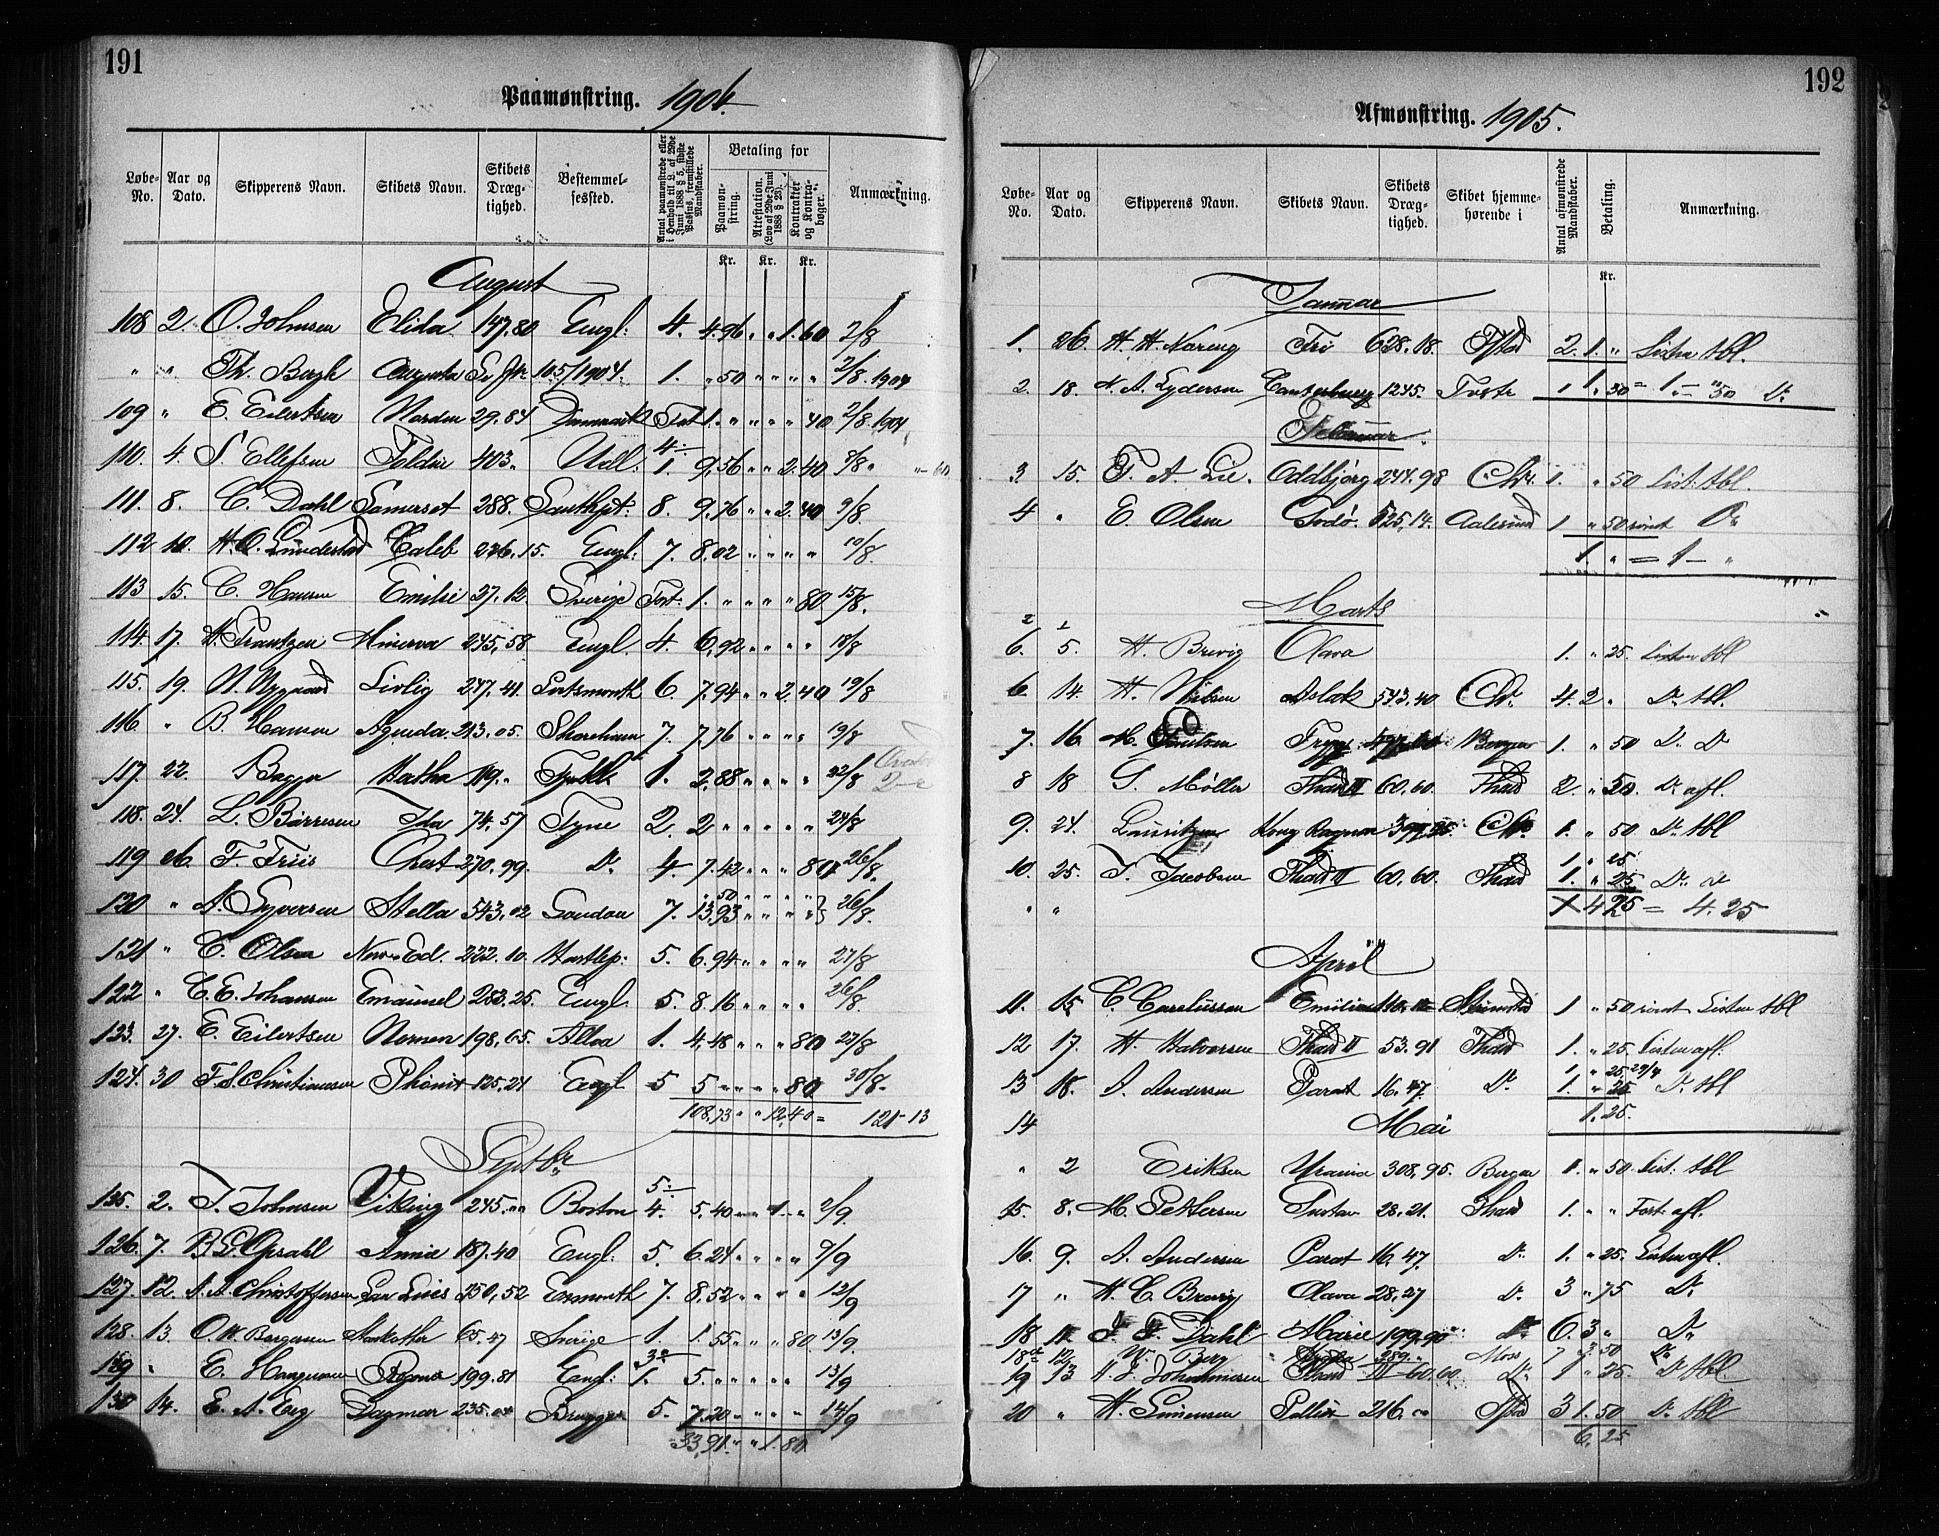 191
Paamønstring. 1904.
Løbe-No. Aar og Dato. Skipperens Navn. Skibets Navn. Skibets Dræg-tighed. Bestemmel-sessted. Antal paamønstrede eller i Henhold til L. af 29de Juni 1888 § 5, sidste Passus, fremstillede Mandskaber. Betaling for Paamøn-string. Attestation. (Lov af 29de Juni 1888 § 23). Kontrakter og Kontra-bøger. Anmærkning.
Kr. Kr. Kr.
August
108 2 O. Johnsen Elida 147,80 Engl: 4. 4.96 " " 1.60 2/8
" " Th. Bergh Augusta 105/1904. 1. " 50 " " " " 2/8 1904
109 " E. Eilertsen Norden 29.84 Danmark Fast 1. " " " " 40 2/8 1904
4
110. 4. S. Ellefsen Foldin 403 " Udl: 1. 9,56 " " 2.40 8/8 "
111. 8. C. Dahl Somerset 288. Southpt: 8. 9.76 " " 2.40 9/8.
112 10. H.O. Lundestad Caleb 226.15. Engl: 7. 8.02 " " " " 10/8.
113 15. C. Hansen Emilie 27.12. Sverige Fast: 1. " " " " 80 15/8.
114. 17. Frantzen Minerva 245,58 Engl. 4. 6,92 " " " " 18/8
115. 19. N. Nygaard Livlig 247.41 Portsmouth 6. 7.94 " " 2.40 19/8
116 " B. Hansen Agenda. 213.05. Shoreham 7. 7,76 " " " " 19/8
117. 22. Bagge Martha 119. " 1. 2,88 " " " " 22/8
118. 24. L. Børresen Ida 74,57 Tyne 2. 2 " " " " " 24/8
119 26. F. Friis Chat 270.99. Do 4. 7.42 " " " 80 26/8.
" 50 " " " "
120 " A. Syversen Stella 543,02 London 7. 13,93 " " " " 26/8.
121 " C. Olsen New Ed. 222.10. Hartlep: 5. 6.94 " " " " 27/8
122 " C.E. Johansen Emanuel 283.25. Engl 5. 8,16 " " " " 26/8.
123. 27. E. Eilertsen Nornen 198,65. Alloa 1. 4,48 " " " 80 27/8
124. 30 F.S. Christiansen Phønix 125.24 Engl. 5 5 " " " " 80 30/8.
108,73 " " 12,40 = 121-13
Septbr
5
125. 2. J. Johnsen Viking 245. " " Boston 4. 5.40 " " 1 " " 2/9.
126. 7. B.G. Opsahl Annie 187.40 Engl: 5. 6.24 " " " " 7/9
127. 12. A.A. Christoffersen San Luis 250,52 Exmouth 7. 8,52 " " " " 12/9
128. 13. O.H. Bergersen 65.47 Sverige 1. 1.55 " " 80 13/9.
3
129 " E. Haagensen 199.81 Engl: 1. 5. " " " " " 13/9
130 14. E.A. Eng Dagmar 235.04 Brugge 5. 7.20 " " " " 14/9
33,91. " " 1.80
192
Afmønstring. 1905.
Løbe-No. Aar og Dato. Skipperens Navn. Skibets Navn. Skibets Dræg-tighed. Skibet hjemme-hørende i Antal afmønstrede Mandskaber. Betaling. Anmærkning.
Kr.
Januar
1. 26. H.H. Næreng Fri 628.18. Fstad 2. 1. " Listen tbl.
2. 18. N.A. Lydersen Canterbury 1245. 1 1 " 50 = 1.- 50 Do
Februar
3. 15. T.A. Lie. Oddbjørg 244.98 Chr. 1. " 50 List: tbl.
4 " E. Olsen Godø. 525,14. Aalesund 1 " 50 Do
1. " = 1 - "
Marts
6. 5. H. Brevig Olava 1. " 25. Listen tbl
6. 14. H. Nielsen Aslak 543.40 Chr. 4. 2 " Do tbl.
7. 16. M. Trygg Bergen 1. " 50 Do Do
8 18 G. Møller Fhald II 60.60. Fhald 2. " 50 Do afl.
9. 24. Lauritzen Kong Ragnar Chr 1. " 50 Do tbl
1. " 25
10. 25. J. Jacobsen Fhald II 60,60. Fhald 1. " 25 Do
" " 4 25 = 4.25
April
11. 15. C. Carelussen Emilie Strømstad 1 " 50 Listen tbl
12 17. H. Halvorsen Fhald II 53.91 Fhald 1. " 25. Listen afl.
1. " 25 29/4
13 18. A. Andersen Parat 16.47. Do 1. " 25 Do tbl
1.25.
14 Mai
" 2 Eriksen Urania 308,95. Bergen 1. " 50. List: tbl
15. 8. M. Pettersen Gustav 28.21. Fhald 1. " " Fort: afl.
16. 9. A. Andersen Parat 16.47. Do 1. " 25. Listen afl.
17 " H.C. Brevig Olava 28,27 Do 3 " 75 Do
18 11 J.F. Dahl Marie 199.90 Do 6. 3 " Do
18a 12 W. Berg 289. " Moss 7 3.50 Do
19 13 A.J. Johannesen Fhald III 60,60 Do 1 " 25. Do tbl.
20 " H. Simensen Pollux 216. " Fstad 3 1.50 Do tbl
6,25